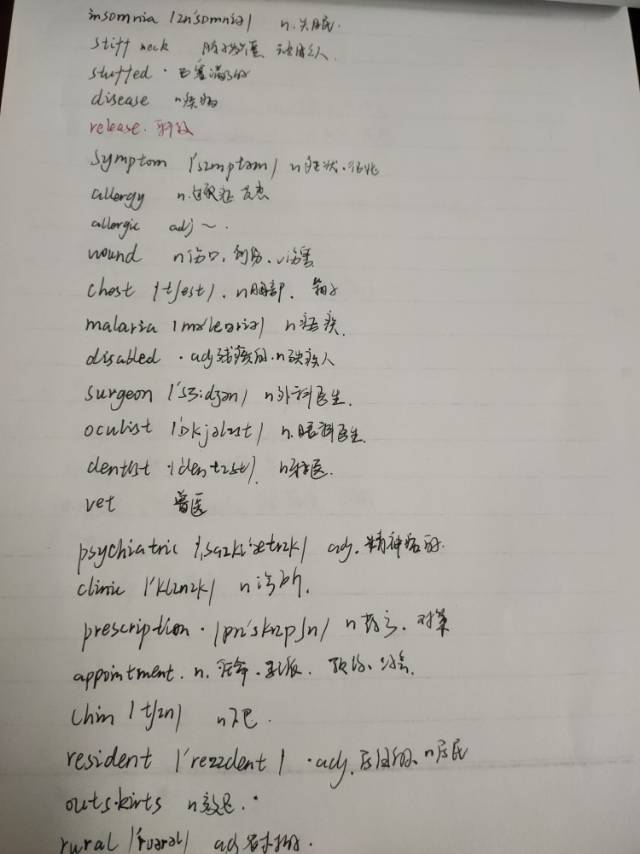 insomnia /ɪn'sɒmnɪə/ n.失眠.
stiff neck
stuffed · 已塞满的
disease n疾病
release. 释放
symptom /'sɪmptəm/ n症状.征兆
allergy n.过敏症
allergic adj ~.
wound n伤口,创伤.v伤害
chest /tʃest/. n胸部. 箱子
malaria /mə'leərɪə/ n疟疾.
disabled ·adj残疾的.n残疾人
surgeon /'sɜːdʒən/ n外科医生.
oculist /'ɒkjəlɪst/ n.眼科医生.
dentist ·/'dentɪst/. n牙医.
vet 兽医
psychiatric /ˌsaɪkɪ'ætrɪk/ adj.精神病的.
clinic /'klɪnɪk/ n诊所.
prescription·/prɪ'skrɪpʃn/ n药方.对策
appointment. n. 任命.委派. 预约.约会.
chin /tʃɪn/ n下巴.
resident /'rezɪdent/ ·adj.居住的.n居民
outskirts n郊区.
rural /'rʊərəl/ adj农村的.